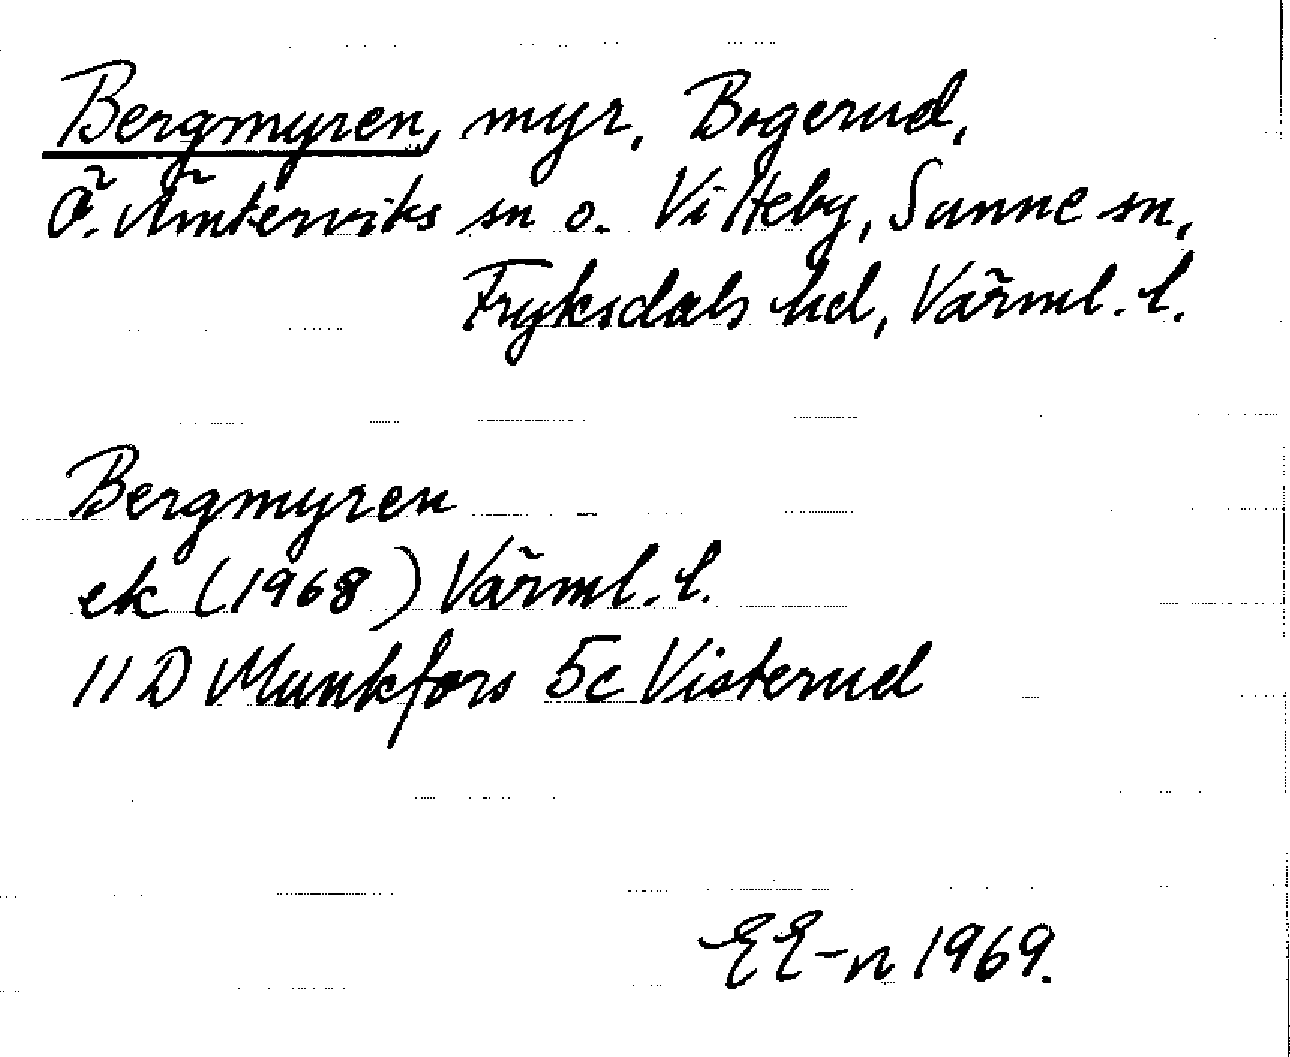 Bergmyren, myr, Bogerud,
Ö. Ämterviks sn o. Vitteby, Sunne sn,
Fryksdals hd, Värml. l.
Bergmyren
ek (1968) Värml. l.
11 D Munkfors 5c Visterud
EE-n 1969.